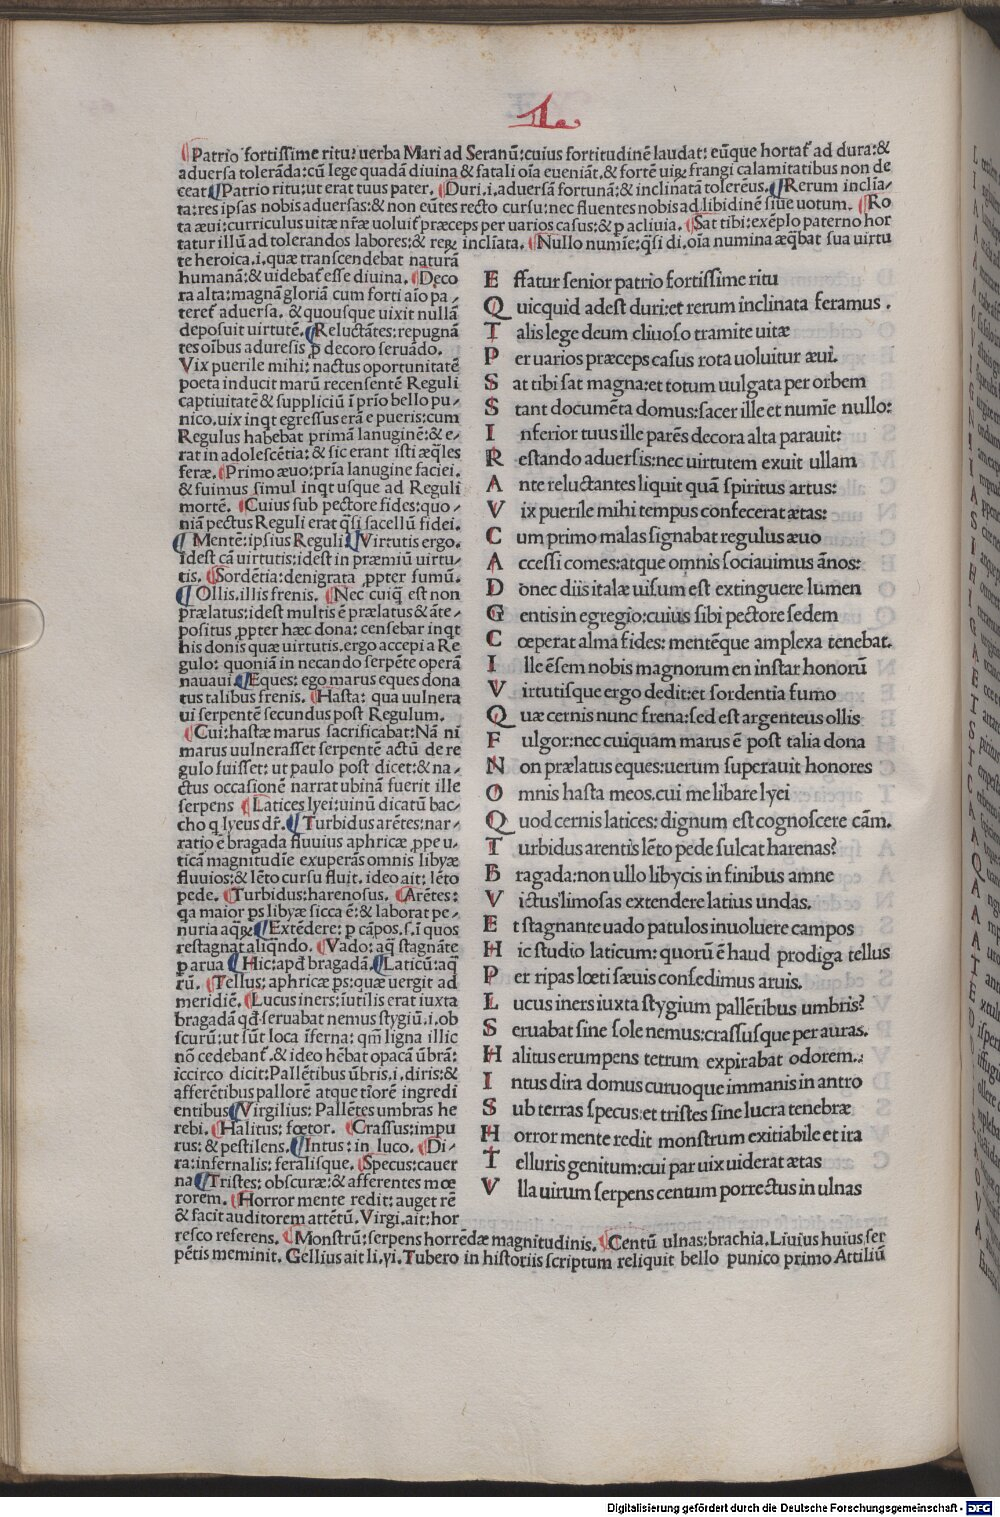 L.
¶Patrio fortissime ritu: uerba Mari ad Seranũ: cuius fortitudinẽ laudat: eũque hortat̃ ad dura: &
aduersa tolerãda: cũ lege quadã diuina & fatali oĩa eueniãt. & fortẽ uiꝝ frangi calamitatibus non de
ceat. ¶Patrio ritu: ut erat tuus pater. ¶Duri.i.aduersã fortunã: & inclinatã tolerẽus. ¶Rerum inclĩa-
ta: res ipsas nobis aduersas: & non eũtes recto cursu: nec fluentes nobis ad libidinẽ siue uotum. ¶Ro
ta æui: curriculus uitæ nr̃æ uoluit̃ præceps per uarios casus: & p acliuia. ¶Sat tibi: exẽplo paterno hor
tatur illũ ad tolerandos labores: & reꝝ inclĩata. ¶Nullo numĩe: q̃si di.oĩa numina æq̃bat sua uirtu
te heroica.i.quæ transcendebat naturã
humanã: & uidebat̃ esse diuina. ¶Deco
ra alta: magnã gloriã cum forti aĩo pa-
teret̃ aduersa. & quousque uixit nullã
deposuit uirtutẽ. ¶Reluctãtes: repugnã
tes oĩbus aduresis ꝓ decoro seruãdo.
Vix puerile mihi: nactus oportunitatẽ
poeta inducit marũ recensentẽ Reguli
captiuitatẽ & suppliciũ ĩ prĩo bello pu-
nico.uix inqt egressus erã e pueris: cum
Regulus habebat primã lanuginẽ: & e-
rat in adolescẽtia: & sic erant isti æq̃les
feræ. ¶Primo æuo: prĩa lanugine faciei.
& fuimus simul inqt usque ad Reguli
mortẽ. ¶Cuius sub pectore fides: quo-
niã pectus Reguli erat q̃si sacellũ fidei.
¶Mentẽ: ipsius Reguli ¶Virtutis ergo.
idest cã uirtutis: idest in præmiũ uirtu-
tis. ¶Sordẽtia: denigrata ꝓpter fumũ.
¶Ollis.illis frenis. ¶Nec cuiq̃ est non
prælatus: idest multis ẽ prælatus & ãte-
positus ꝓpter hæc dona: censebar inqt
his donis quæ uirtutis.ergo accepi a Re
gulo: quoniã in necando serpẽte operã
nauaui. ¶Eques: ego marus eques dona
tus talibus frenis. ¶Hasta: qua uulnera
ui serpentẽ secundus post Regulum.
¶Cui: hastæ marus sacrificabat: Nã ni
marus uulnerasset serpentẽ actũ de re
gulo fuisset: ut paulo post dicet: & na-
ctus occasionẽ narrat ubinã fuerit ille
serpens ¶Latices lyei: uinũ dicatũ bac-
cho q lyeus dr̃. ¶Turbidus arẽtes: nar-
ratio ẽ bragada fluuius aphricæ ꝓpe u-
ticã magnitudĩe exuperãs omnis libyæ
fluuios: & lẽto cursu fluit. ideo ait: lẽto
pede. ¶Turbidus: harenosus. ¶Arẽtes:
qa maior ps libyæ sicca ẽ: & laborat pe-
nuria aq̃ꝝ ¶Extẽdere: p cãpos.s.ĩ quos
restagnat aliq̃ndo. ¶Vado: aq̃ stagnãte
parua ¶Hic: apđ bragadã. ¶Laticũ: aq̃
rũ. ¶Tellus: aphricæ ps: quæ uergit ad
meridiẽ. ¶Lucus iners: ĩutilis erat iuxta
bragadã qđ seruabat nemus stygiũ.i.ob
scurũ: ut sũt loca ĩferna: qm̃ ligna illic
nõ cedebant̃. & ideo hẽbat opacã ũbrã:
iccirco dicit: Pallẽtibus ũbris.i.diris: &
afferẽtibus pallorẽ atque tĩorẽ ingredi
entibus ¶Virgilius: Pallẽtes umbras he
rebi. ¶Halitus: fœtor. ¶Crassus: impu
rus: & pestilens. ¶Intus: in luco. ¶Di-
ra: infernalis: feralisque. ¶Specus: cauer
na ¶Tristes: obscuræ: & afferentes mœ
rorem. ¶Horror mente redit: auget rẽ
& facit auditorem attẽtũ. Virgi.ait: hor
resco referens. ¶Monstrũ: serpens horrẽdæ magnitudinis. ¶Centũ ulnas: brachia. Liuius huius ser
pẽtis meminit. Gellius ait li.vi. Tubero in historiis scriptum reliquit bello punico primo Attiliũ
E ffatur senior patrio fortissime ritu
Q uicquid adest duri: et rerum inclinata feramus .
T alis lege deum cliuoso tramite uitæ
P er uarios præceps casus rota uoluitur æui.
S at tibi sat magna: et totum uulgata per orbem
S tant documẽta domus: sacer ille et numĩe nullo:
I nferior tuus ille parẽs decora alta parauit:
R estando aduersis: nec uirtutem exuit ullam
A nte reluctantes liquit quã spiritus artus:
V ix puerile mihi tempus confecerat ætas:
C um primo malas signabat regulus æuo
A ccessi comes: atque omnis sociauimus ãnos:
D onec diis italæ uisum est extinguere lumen
G entis in egregio: cuius sibi pectore sedem
C œperat alma fides: mentẽque amplexa tenebat.
I lle ẽsem nobis magnorum en instar honorũ
V irtutisque ergo dedit: et sordentia fumo
Q uæ cernis nunc frena: sed est argenteus ollis
F ulgor: nec cuiquam marus ẽ post talia dona
N on prælatus eques: uerum superauit honores
O mnis hasta meos.cui me libare lyei
Q uod cernis latices: dignum est cognoscere cãm.
T urbidus arentis lẽto pede sulcat harenas?
B ragada: non ullo libycis in finibus amne
V ictus limosas extendere latius undas.
E t stagnante uado patulos inuoluere campos
H ic studio laticum: quorũ ẽ haud prodiga tellus
P er ripas lœti sæuis consedimus aruis.
L ucus iners iuxta stygium pallẽtibus umbris?
S eruabat sine sole nemus: crassusque per auras.
H alitus erumpens tetrum expirabat odorem.:
I ntus dira domus curuoque immanis in antro
S ub terras specus: et tristes sine lucra tenebræ
H orror mente redit monstrum exitiabile et ira
T elluris genitum: cui par uix uiderat ætas
V lla uirum serpens centum porrectus in ulnas
Digitalisierung gefördert durch die Deutsche Forschungsgemeinschaft - DFG